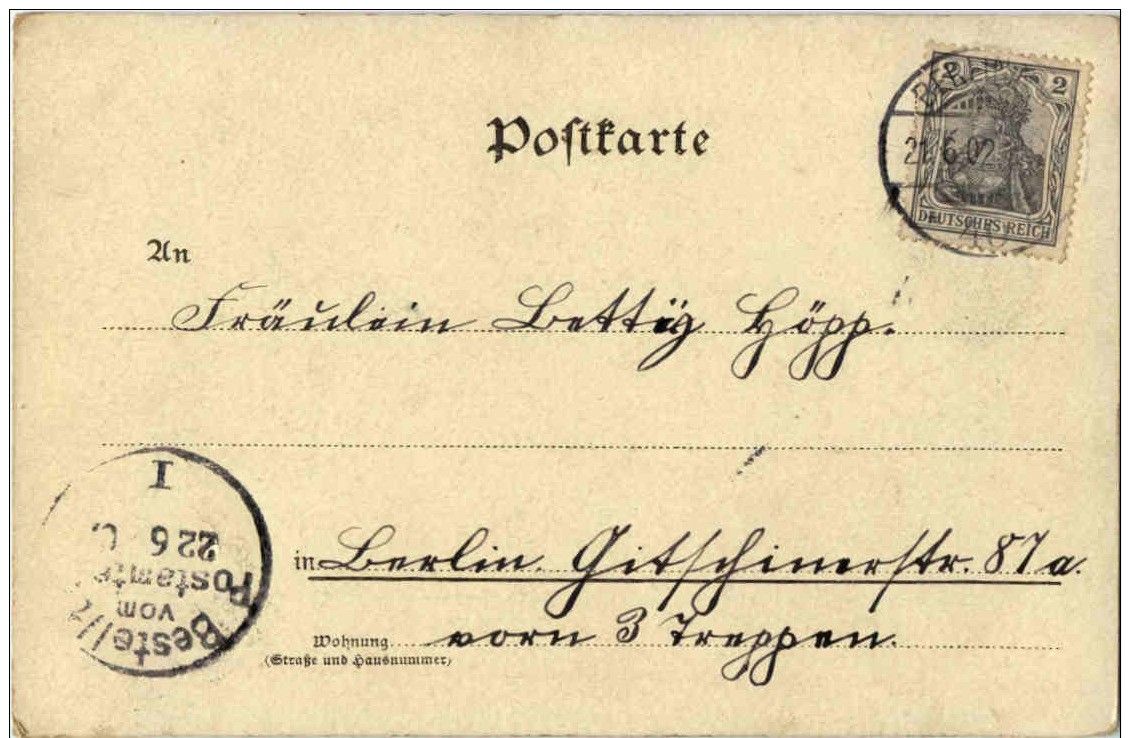 Postkarte
2
DEUTSCHES REICH
BERLIN
21.6.02
An
Fräulein Bettÿ Höpp.
in Berlin. Gitschinerstr. 87a.
Wohnung vorn 3 Treppen.
(Straße und Hausnummer)
Bestellt
vom
Postamte
22 6
I